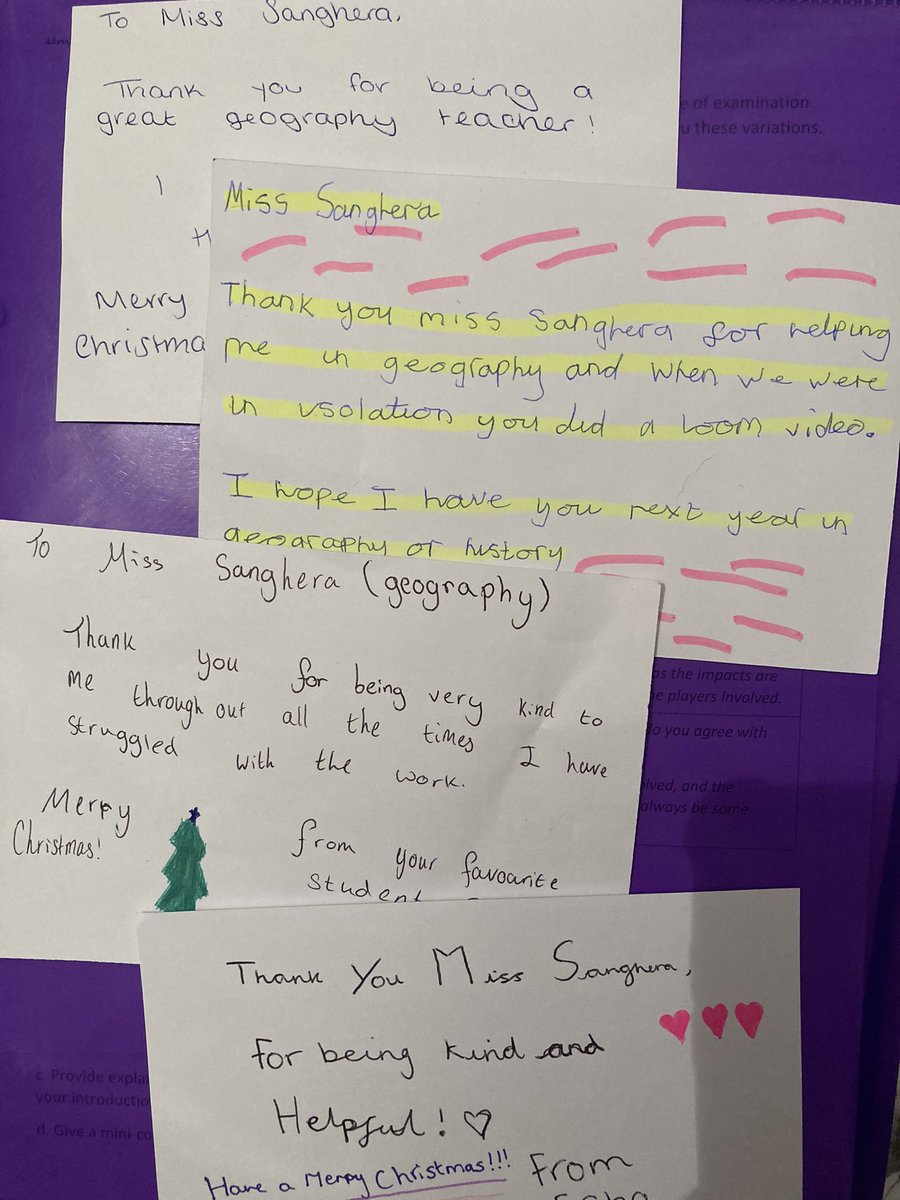 To Miss Sanghera,
Thank you for being a
great geography teacher!
I
Merry
Christma
e of examination
u these variations.
Miss Sanghera
Thank you miss Sanghera for helping
me in geography and when we were
in isolation you did a loom video.
I hope I have you next year in
geography or history
To Miss Sanghera (geography)
Thank you for being very kind to
me through out all the times I have
struggled with the work.
Merry
Christmas!
from your favourite
student
as the impacts are
e players involved.
do you agree with
lved, and the
always be some
Thank You Miss Sanghera,
for being kind and
Helpful!
Have a Merry Christmas!!! From
c. Provide expla
your introductio
d. Give a mini-co